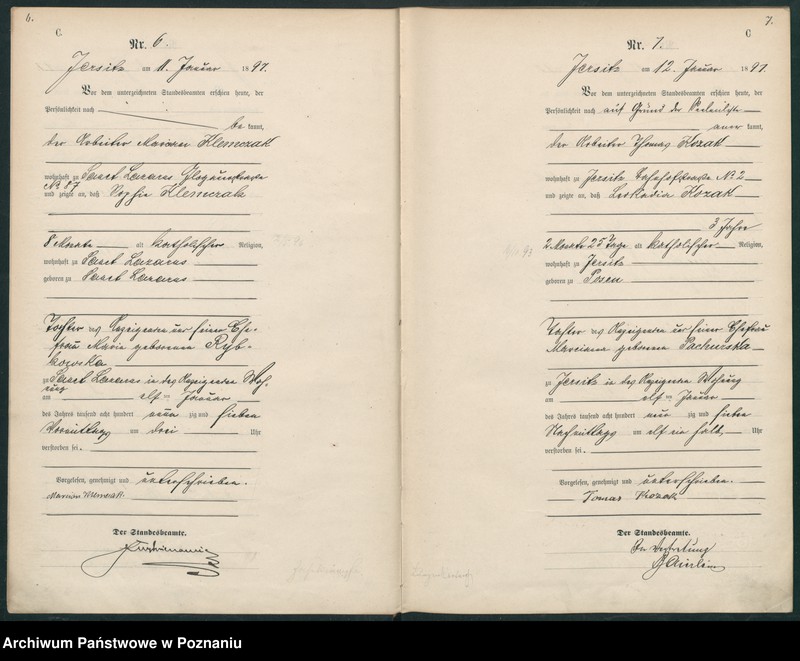 6.
C.
Nr. 6.
Jersitz am 11. Januar 1897.
Vor dem unterzeichneten Standesbeamten erschien heute, der
Persönlichkeit nach
be kannt,
der Arbeiter Marian Klemczak
wohnhaft zu Sanct Lazarus Glogauerstraße
No 87
und zeigte an, daß Sophie Klemczak
8 Monate alt katholischer Religion,
wohnhaft zu Sanct Lazarus
geboren zu Sanct Lazarus
Tochter des Anzeigenden und seiner Ehe-
frau Marie geborenen Ryb-
kowska
zu Sanct Lazarus in des Anzeigenden Woh-
nung
am elf ten Januar
des Jahres tausend acht hundert neun zig und sieben
Vormittags um drei Uhr
verstorben sei.
Vorgelesen, genehmigt und unterschrieben.
Marian Klemczak
Der Standesbeamte.
7.
C
Nr. 7.
Jersitz am 12. Januar 1897.
Vor dem unterzeichneten Standesbeamten erschien heute, der
Persönlichkeit nach auf Grund der
aner kannt,
der Arbeiter Thomas Kozak
wohnhaft zu Jersitz Bahnhofstraße No 2
und zeigte an, daß Leokadia Kozak
3 Jahre
2 Monate 25 Tage alt katholischer Religion,
wohnhaft zu Jersitz
geboren zu Posen
Tochter des Anzeigenden und seiner Ehefrau
Marciana geborenen Pachurska
zu Jersitz in des Anzeigenden Wohnung
am elf ten Januar
des Jahres tausend acht hundert neun zig und sieben
Nachmittags um elf ein halb Uhr
verstorben sei.
Vorgelesen, genehmigt und unterschrieben.
Tomas Kozak
Der Standesbeamte.
In Vertretung
Archiwum Państwowe w Poznaniu